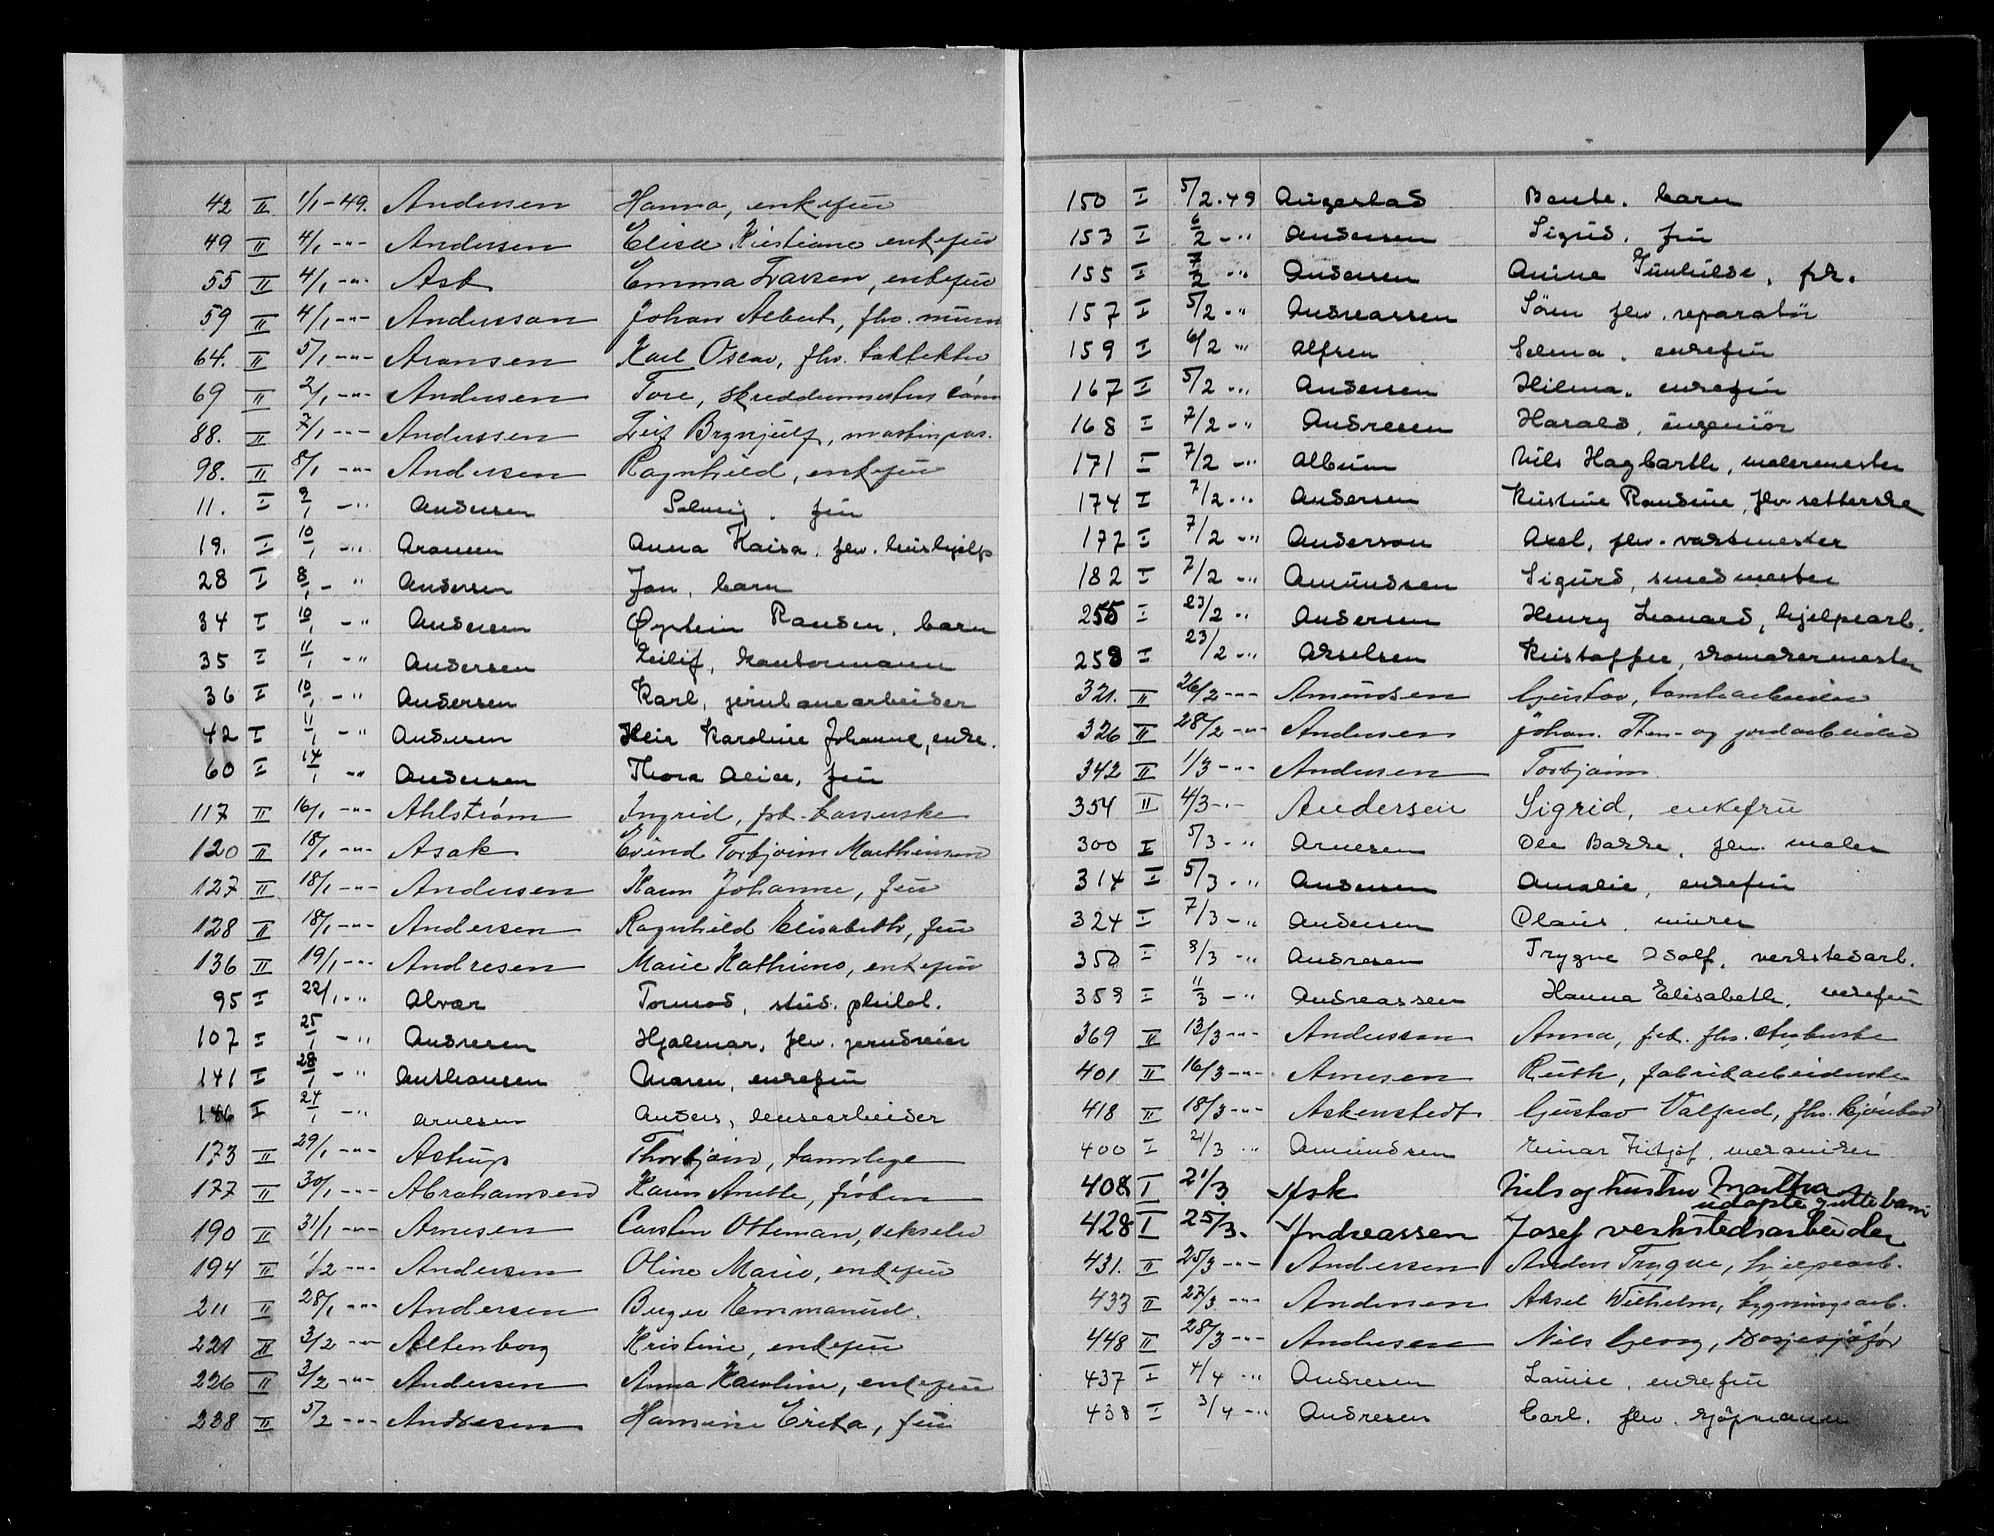 42 II 1/1-49. Andersen Hanna, enkefru
49 II 4/1 -"- Andersen Elisa Kristiane enkefru
55 II 4/1 -"- Ask Emma Larsen, enkefru
59 II 4/1 -"- Andersson Johan Albert, fhv. murer
64. II 5/1 -"- Aronsen Karl Oscar, fhv. taktekker
69 II 2/1 -"- Andersen Tore, skreddermesters sønn
88. II 7/1 -"- Anderssen Leif Brynjulf, maskinpas.
98. II 8/1 -"- Andersen Ragnhild, enkefru
11. I 9/1 -" Andersen Solveig. fru
19. I 10/1 -" Aronsen Anna Kaisa. fhv. hushjelp
28 I 8/1 -" Andersen Jan, barn
34 I 10/1 -" Andersen Øystein Randen, barn
35 I 11/1 -" Andersen Eilif, kontormann
36 I 10/1 -" Andersen Karl, jernbanearbeider
42 I 11/1 -" Andersen Karoline Johanne, enke.
60 I 14/1 " Andersen Thora Alice, fru
117 II 16/1 -"- Ahlstrøm Ingrid, frk. kasserske
120 II 18/1 -"- Asak Torbjørn Marthinsen
127 II 18/1 -"- Andersen Karen Johanne, fru
128 II 18/1 -"- Andersen Ragnhild Elisabeth, fru
136 II 19/1 -"- Andresen Marie Kathrine, enkefru
95 I 22/1 -" Alvær Tormod, stud. philol.
107 I 25/1 -" Andresen Hjalmar, fhv. jerndreier
141 I 28/1 -" Anthonsen Maren, enkefru
146 I 24/1 -" Arnesen Anders, lensearbeider
173 II 29/1 -"- Astrup Thorbjørn, tannlege
177 II 30/1 -"- Abrahamsen Karin Anette, frøken
190 II 31/1 -"- Arnesen Carsten Ottemar, veksler
194 II 1/2 -"- Andersen Oline Marie, enkefru
211 II 28/1 -"- Andersen Birger Emmanuel.
221 II 3/2 -"- Altenborg Kristine, enkefru
226 II 3/2 -"- Andersen Anna Karoline, enkefru
238 II 5/2 -"- Andresen Hansine Erika, fru
150 I 5/2.49 Augestad Bente. barn
153 I 6/2 -" Andersen Sigrid. fru
155 I 7/2 " Andersen Anine Gunhilde, frk.
157 I 5/2 " Andreassen Søren fhv. reparatør
159 I 6/2 " Alfsen Selma. enkefru
167 I 5/2 " Andersen Hilma. enkefru
168 I 7/2 -" Andresen Harald, ingeniør
171 I 7/2 -" Album Nils Hagbarth, malermester
174 I 7/2 -" Andersen Kristine Randine, fhv. setterske
177 I 7/2 -" Anderson Axel, fhv. vaktmester
182 I 7/2 -" Amundsen Sigurd, smedmester
255 I 23/2 " Andersen Henry Leonard, hjelpearb.
258 I 23/2 -" Akselsen Kristoffer, skomakermester
321. II 26/2 -"- Amundsen Gustav, tomtearbeider
326 II 28/2 -"- Andersen Johan. Sten- og jordarbeider
342 II 1/3 -"- Andersen Torbjørn
354 II 4/3 -"- Andersen Sigrid, enkefru
300 I 5/3 -" Arnesen Ole Bakke, fhv. maler
314 I 5/3 -" Andersen Amalie, enkefru
324 I 7/3 -" Andersen Olaus, murer
350 I 8/3 -" Andresen Trygve Odolf, verkstedarb.
359 I 11/3 -" Andreassen Hanna Elisabeth, enkefru
369 II 13/3 -"- Andersson Anna, frk. fhv.
401 II 16/3 -"- Arnesen Ruth, fabrikarbeiderske
418 II 18/3 -"- Askenstedt Gustav Valfred, fhv.
400 I 21/3 " Amundsen Einar Fritjof, mekaniker
408 I 21/3 Ask Nils og hustru Marthas
udøpte guttebarn
428 I 25/3. Andreassen Josef verkstedsarbeider
431. II 25/3 -"- Andersen Anders Trygve, hjelpearb.
433 II 27/3 -"- Andersen Aksel Wilhelm, bygningsarb.
448 II 28/3 -"- Andersen Nils Georg, drosjesjåfør
437 I 4/4 -" Andresen Louise, enkefru
438 I 3/4 -" Andresen Carl. fhv. sjøpmann